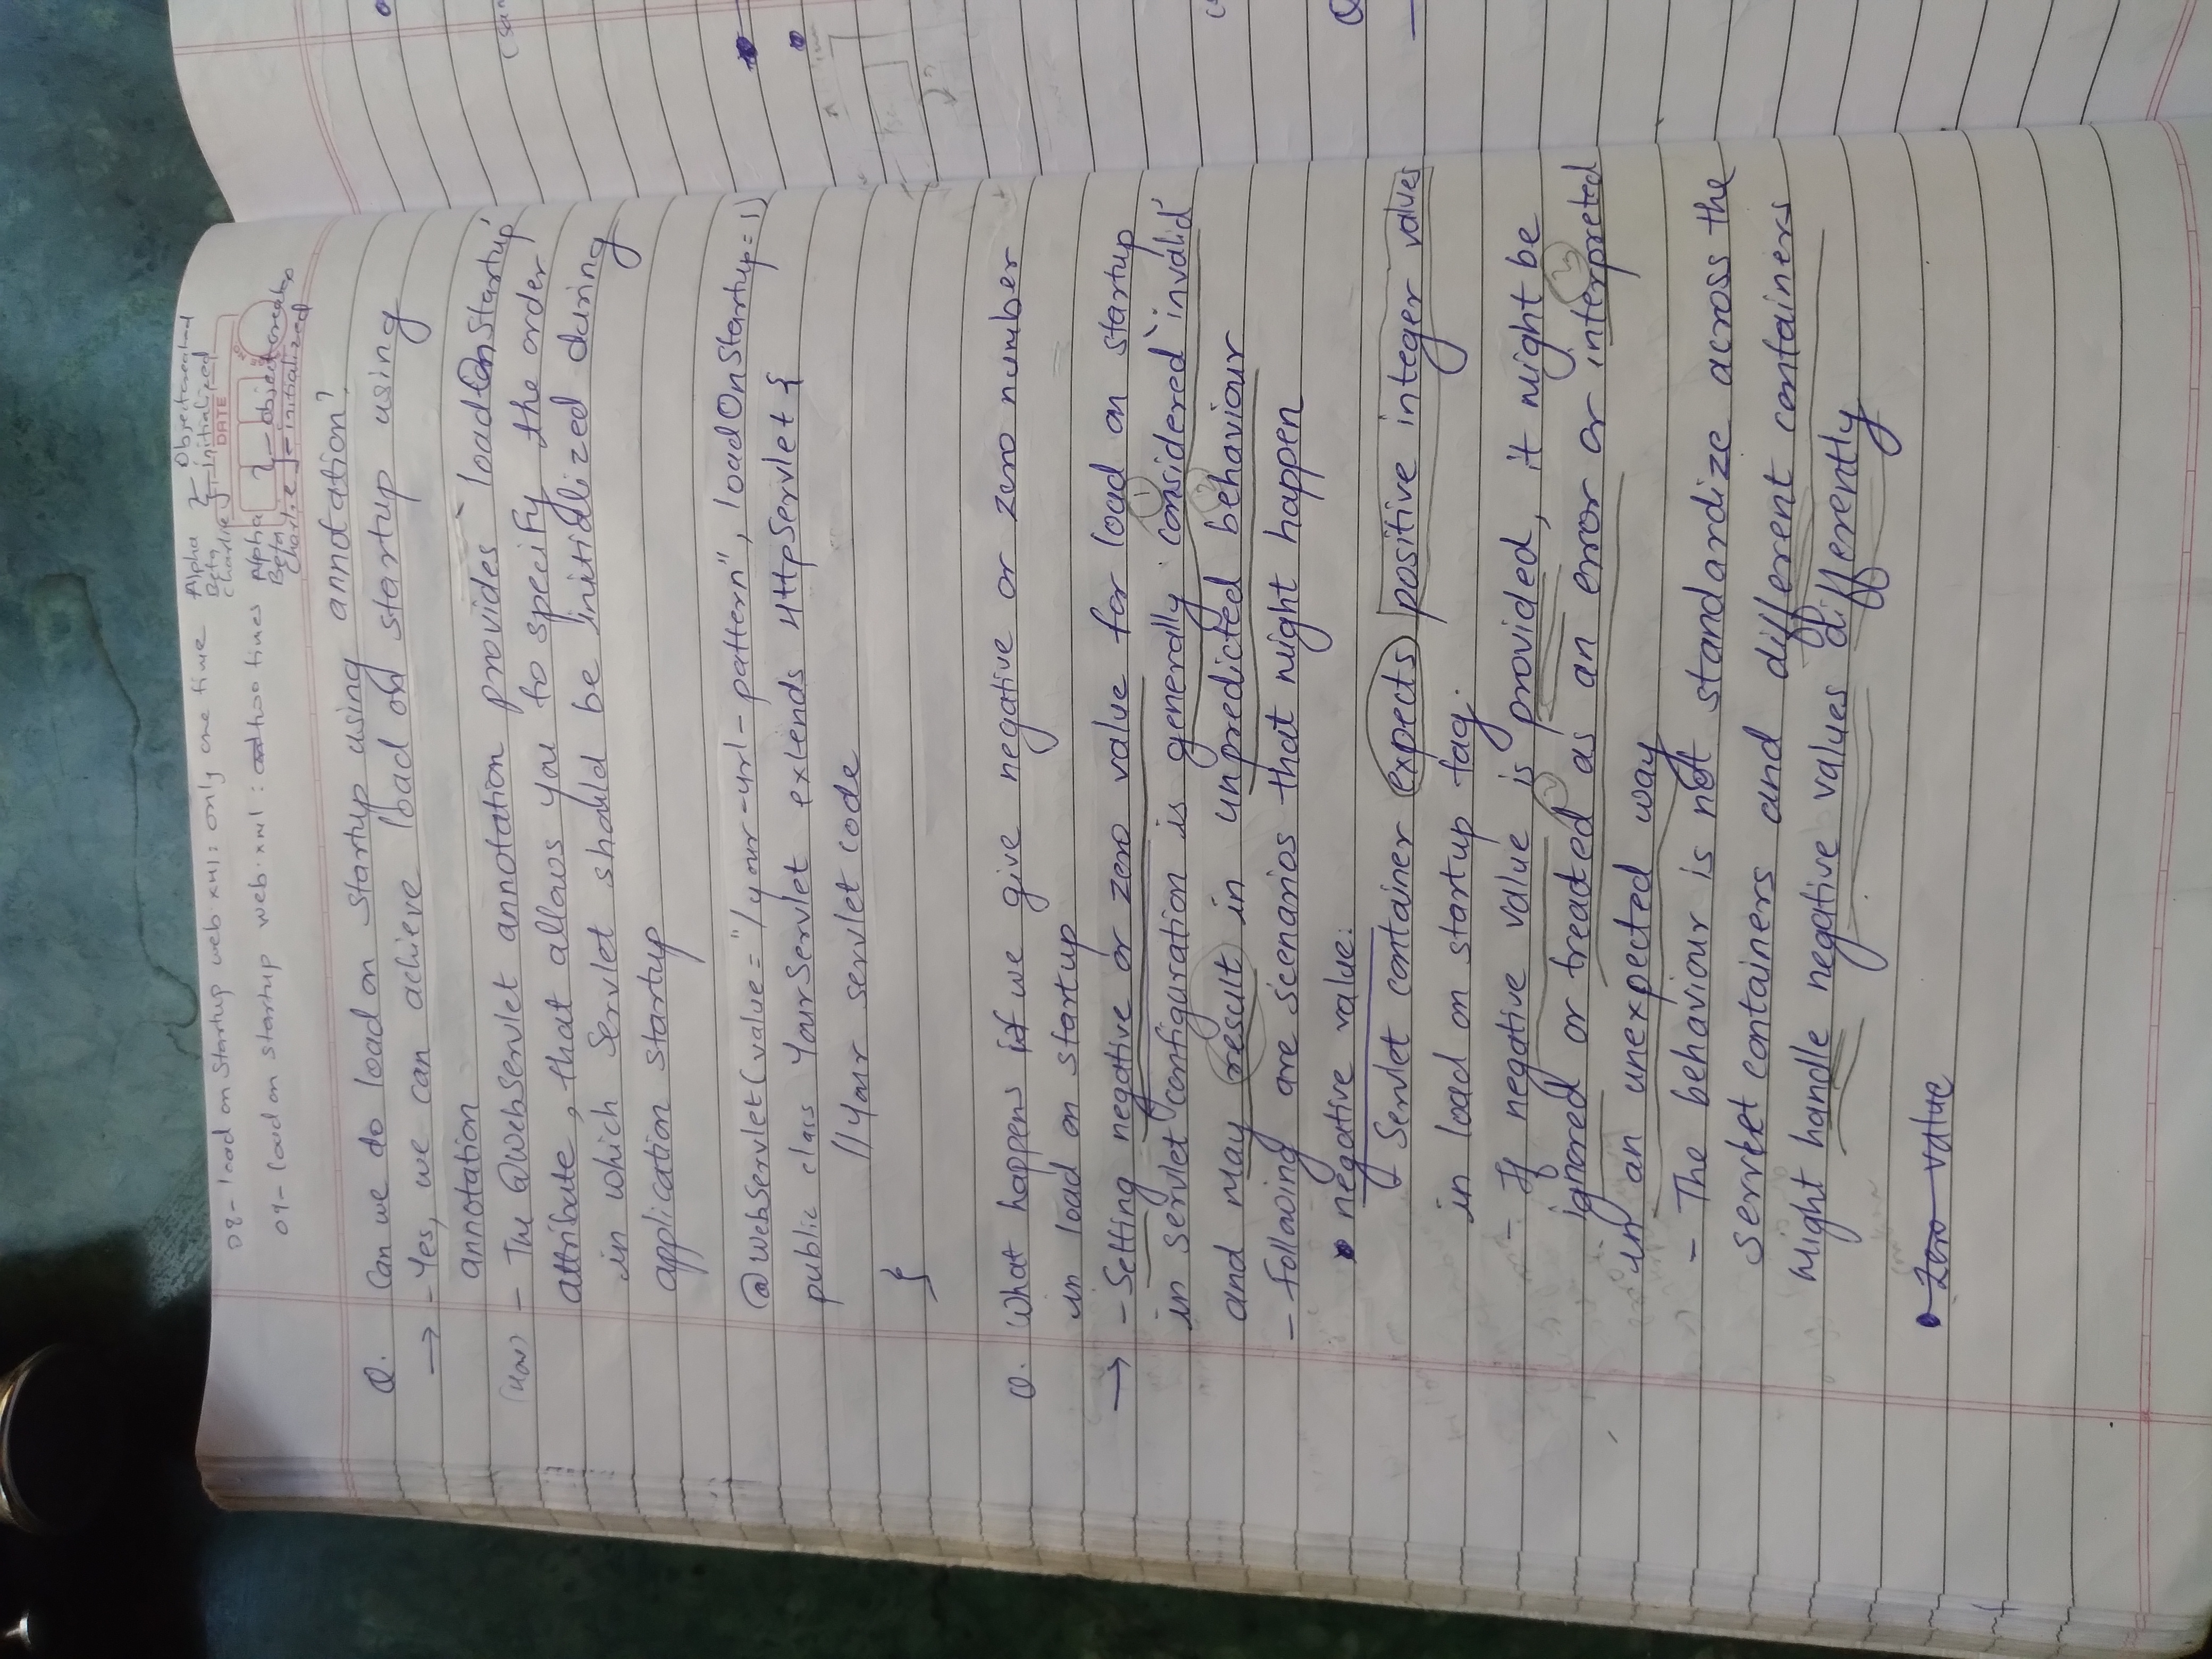 08- load on Startup web.xml: only one time Alpha Beta Charlie } - Object created initialized
DATE
09- load on startup web.xml : two times Alpha Beta Charlie } - object created - initialized
Q. Can we do load on startup using annotation?
→ - Yes, we can achieve load on startup using
annotation
(How) - The @WebServlet annotation provides `loadOnStartup'
attribute, that allows you to specify the order
in which Servlet should be initialized during
application startup
@WebServlet(value="/your-url-pattern", loadOnStartup=1)
public class YourServlet extends HttpServlet {
//Your servlet code
}
Q. What happens if we give negative or zero number
in load on startup
→ - Setting negative or zero value for load on startup
in servlet configuration is generally considered `invalid'
and may result in unpredicted behaviour
- following are scenarios that might happen
• negative value:
- Servlet container expects positive integer values
in load on startup tag.
- If negative value is provided, it might be
ignored or treated as an error or interpreted
in an unexpected way
- The behaviour is not standardize across the
servlet containers and different containers
might handle negative values differently
• Zero value